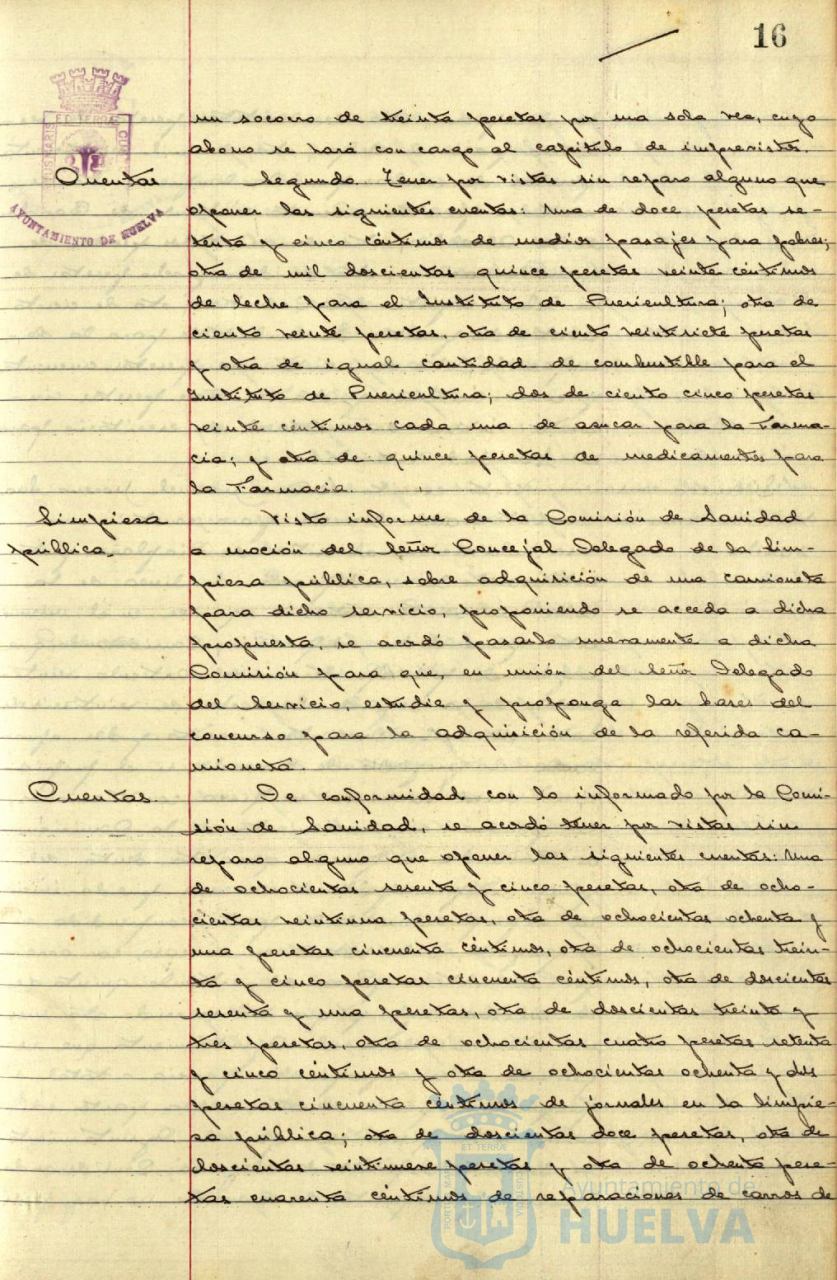 16
un socorro de treinta pesetas por una sola vez, cuyo
abono se hará con cargo al capítulo de imprevistos.
Cuentas
Segundo. Tener por vistas sin reparo alguno que
oponer las siguientes cuentas: Una de doce pesetas se-
tenta y cinco céntimos de medios pasajes para pobres;
otra de mil doscientas quince pesetas veinte céntimos
de leche para el Instituto de Puericultura; otra de
ciento veinte pesetas, otra de ciento veintisiete pesetas
y otra de igual cantidad de combustible para el
Instituto de Puericultura; dos de ciento cinco pesetas
veinte céntimos cada una de azucar para la Farma-
cia; y otra de quince pesetas de medicamentos para
la Farmacia.
Limpieza
pública.
Visto informe de la Comisión de Sanidad
a moción del Señor Concejal Delegado de la lim-
pieza pública, sobre adquisición de una camioneta
para dicho servicio, proponiendo se acceda a dicha
propuesta, se acordó pasarlo nuevamente a dicha
Comisión para que, en unión del Señor Delegado
del Servicio, estudie y proponga las bases del
concurso para la adquisición de la referida ca-
mioneta.
Cuentas.
De conformidad con lo informado por la Comi-
sión de Sanidad, se acordó tener por vistas sin
reparo alguno que oponer las siguientes cuentas: Una
de ochocientas sesenta y cinco pesetas, otra de ocho-
cientas veintinna pesetas, otra de ochocientas ochenta y
una pesetas cincuenta céntimos, otra de ochocientas trein-
ta y cinco pesetas cincuenta céntimos, otra de doscientas
sesenta y una pesetas, otra de doscientas treinta y
tres pesetas, otra de ochocientas cuatro pesetas setenta
y cinco céntimos y otra de ochocientas ochenta y dos
pesetas cincuenta céntimos de jornales en la limpie-
za pública; otra de doscientas doce pesetas, otra de
doscientas veintinueve pesetas y otra de ochenta pese-
tas cuarenta céntimos de reparaciones de carros de
AYUNTAMIENTO DE HUELVA
Ayuntamiento de
HUELVA